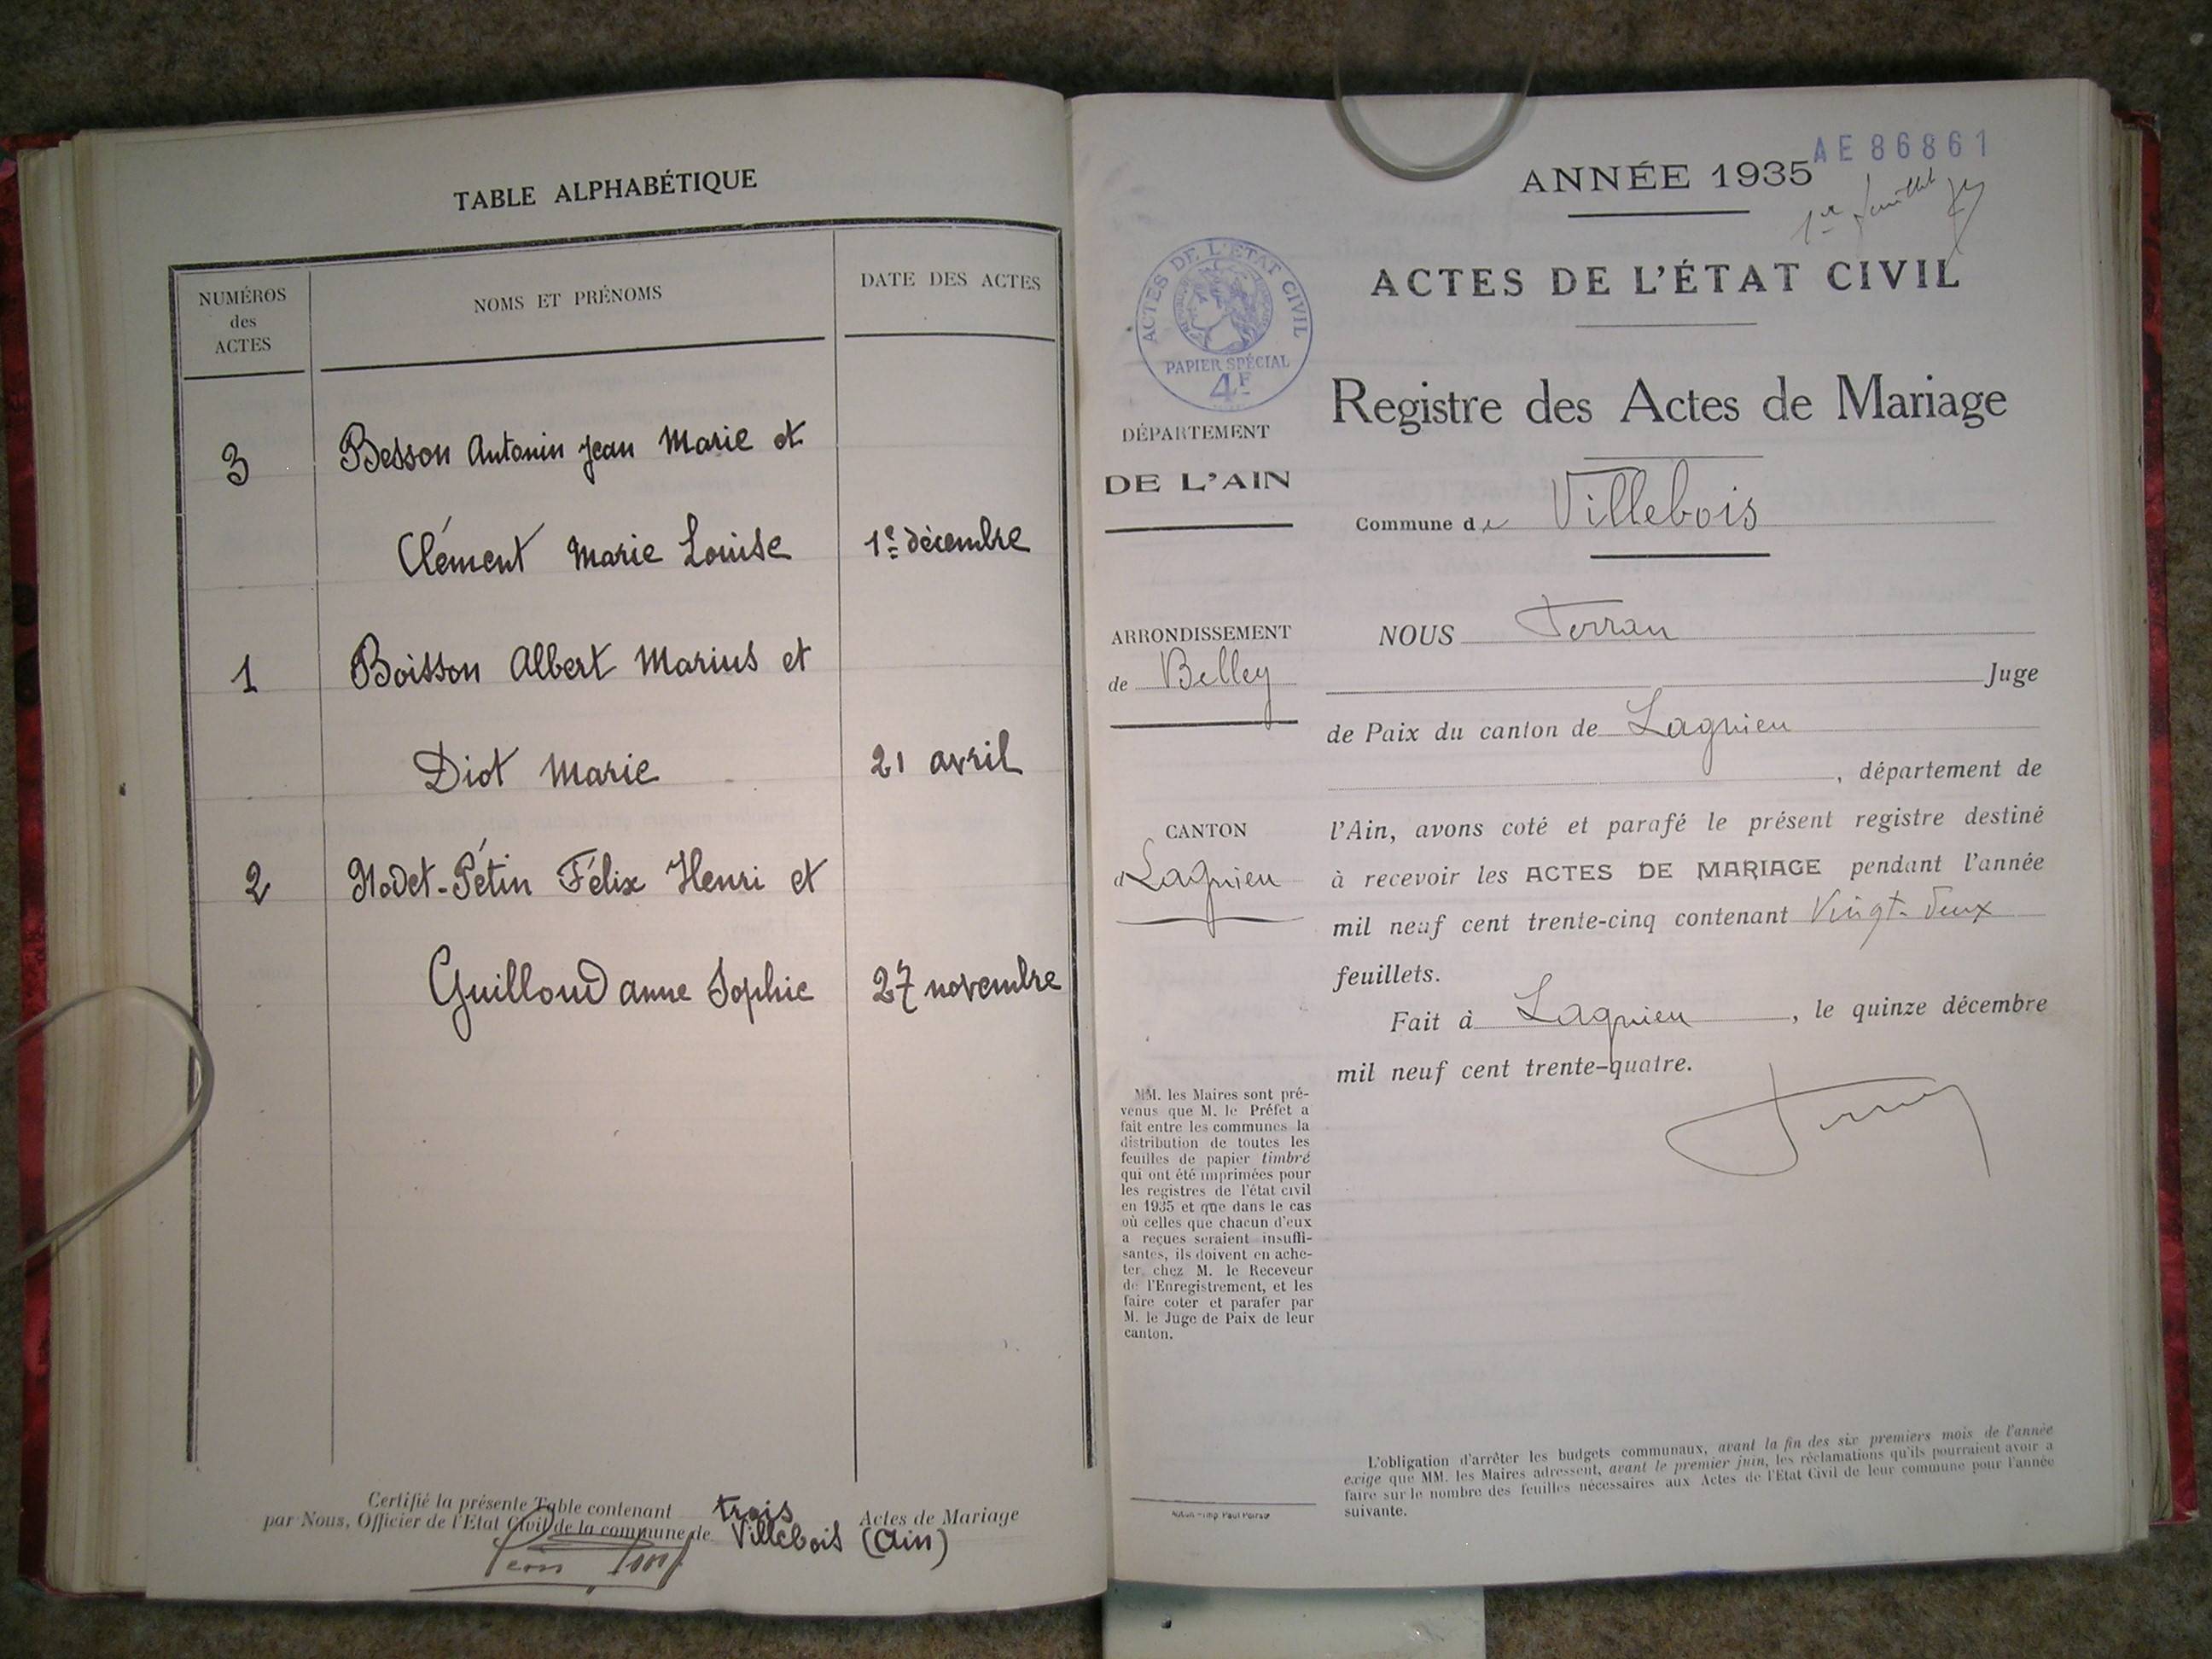 TABLE ALPHABÉTIQUE
NUMÉROS
des
ACTES
NOMS ET PRÉNOMS
DATE DES ACTES
3 Besson Antonin Jean Marie et
Clément Marie Louise 1e décembre
1 Boisson Albert Marius et
Diot Marie 21 avril
2 Nodet-Pétin Félix Henri et
Guilloud Anne Sophie 27 novembre
Certifié la présente Table contenant trois Actes de Mariage
par Nous, Officier de l'Etat Civil de la commune de Villebois (Ain)
AE86861
ANNÉE 1935
1er feuillet
ACTES DE L'ÉTAT CIVIL
ACTES DE L'ÉTAT CIVIL
PAPIER SPÉCIAL
4F
Registre des Actes de Mariage
DÉPARTEMENT
DE L'AIN
Commune de Villebois
ARRONDISSEMENT
de Belley
CANTON
d Lagnieu
MM. les Maires sont pré-
venus que M. le Préfet a
fait entre les communes la
distribution de toutes les
feuilles de papier timbré
qui ont été imprimées pour
les registres de l'état civil
en 1935 et que dans le cas
où celles que chacun d'eux
a reçues seraient insuffi-
santes, ils doivent en ache-
ter chez M. le Receveur
de l'Enregistrement, et les
faire coter et parafer par
M. le Juge de Paix de leur
canton.
NOUS Ferran
Juge
de Paix du canton de Lagnieu
, département de
l'Ain, avons coté et parafé le présent registre destiné
à recevoir les ACTES DE MARIAGE pendant l'année
mil neuf cent trente-cinq contenant Vingt-deux
feuillets.
Fait à Lagnieu, le quinze décembre
mil neuf cent trente-quatre.
L'obligation d'arrêter les budgets communaux, avant la fin des six premiers mois de l'année
exige que MM. les Maires adressent, avant le premier juin, les réclamations qu'ils pourraient avoir a
faire sur le nombre des feuilles nécessaires aux Actes de l'Etat Civil de leur commune pour l'année
suivante.